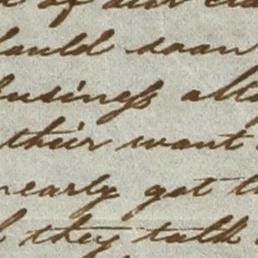 of our
should soon
business
their want
nearly got
they talk